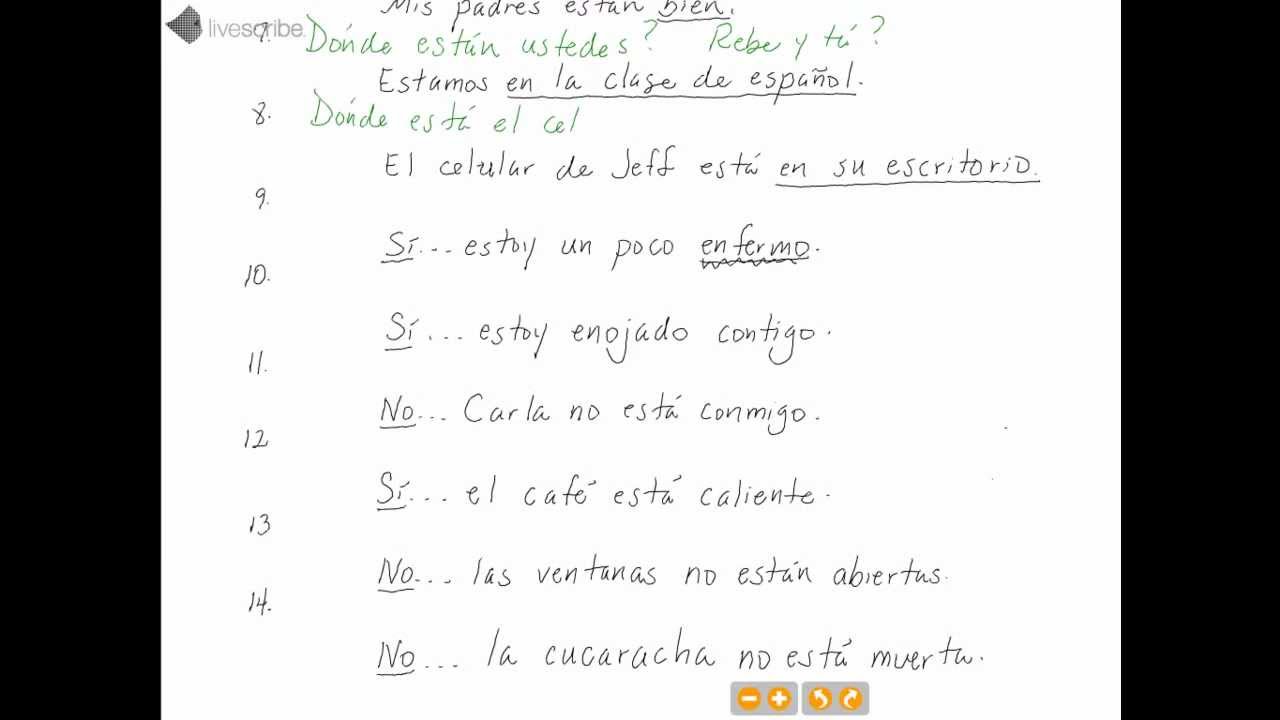 Mis padres están bien.
livescribe
7. Dónde están ustedes? Rebe y tú?
Estamos en la clase de español.
8. Dónde está el cel
El celular de Jeff está en su escritorio.
9.
Sí... estoy un poco enfermo.
10.
Sí... estoy enojado contigo.
11.
No... Carla no está conmigo.
12
Sí... el café está caliente.
13
No... las ventanas no están abiertas.
14.
No... la cucaracha no está muerta.